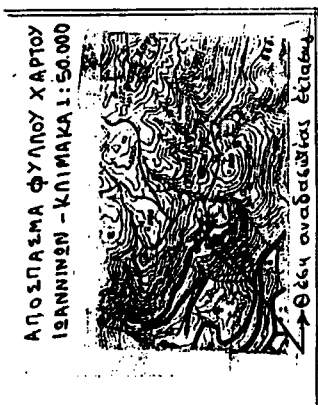 ΑΠΟΣΠΑΣΜΑ ΦΥΛΛΟΥ ΧΑΡΤΟΥ
ΙΩΑΝΝΙΝΩΝ - ΚΛΙΜΑΚΑ 1:50.000
Θέση αναδασωτέας έκτασης